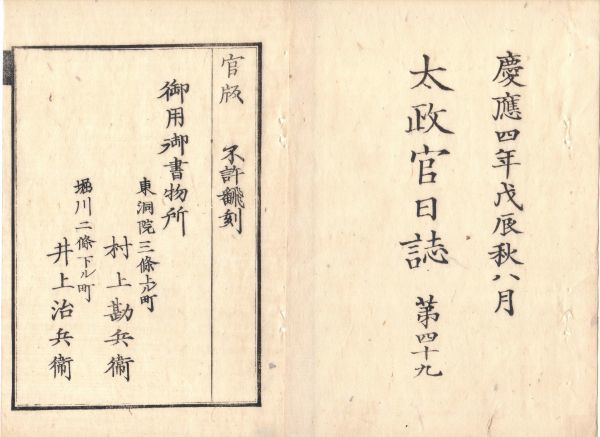 慶應四年戊辰秋八月
太政官日誌 第四十九
官版 不許翻刻
御用御書物所
東洞院三條上ル町
村上勘兵衞
堀川二條下ル町
井上治兵衞